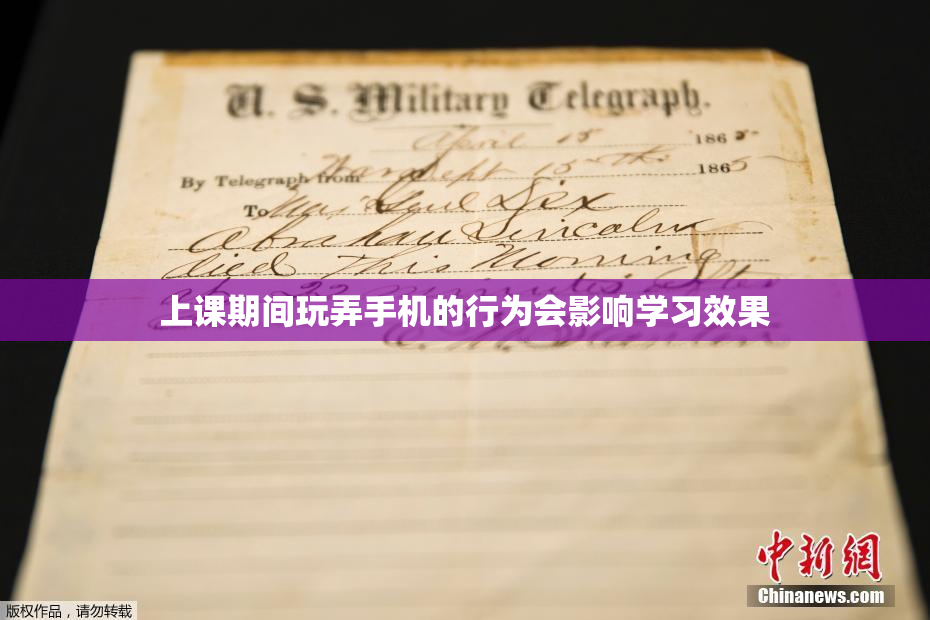 U. S. Military Telegraph.
April 15 1865
By Telegraph from War Dept 15th 1865
To Maj Genl Dix
Abraham Lincoln
died This Morning
at 22 minutes after
上课期间玩弄手机的行为会影响学习效果
中新网
Chinanews.com
版权作品，请勿转载